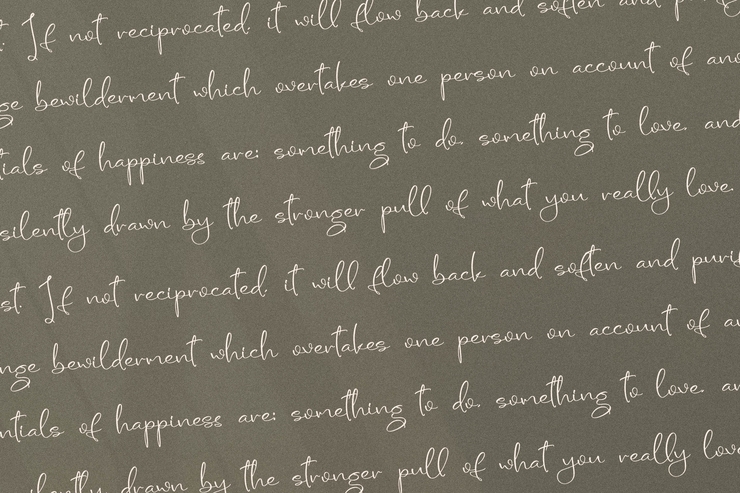 If not reciprocated it will flow back and soften and
bewilderment which overtakes one person on account of
of happiness are: something to do, something to love, and
silently drawn by the stronger pull of what you really love.
If not reciprocated it will flow back and soften and
bewilderment which overtakes one person on account of
of happiness are: something to do, something to love,
drawn by the stronger pull of what you really